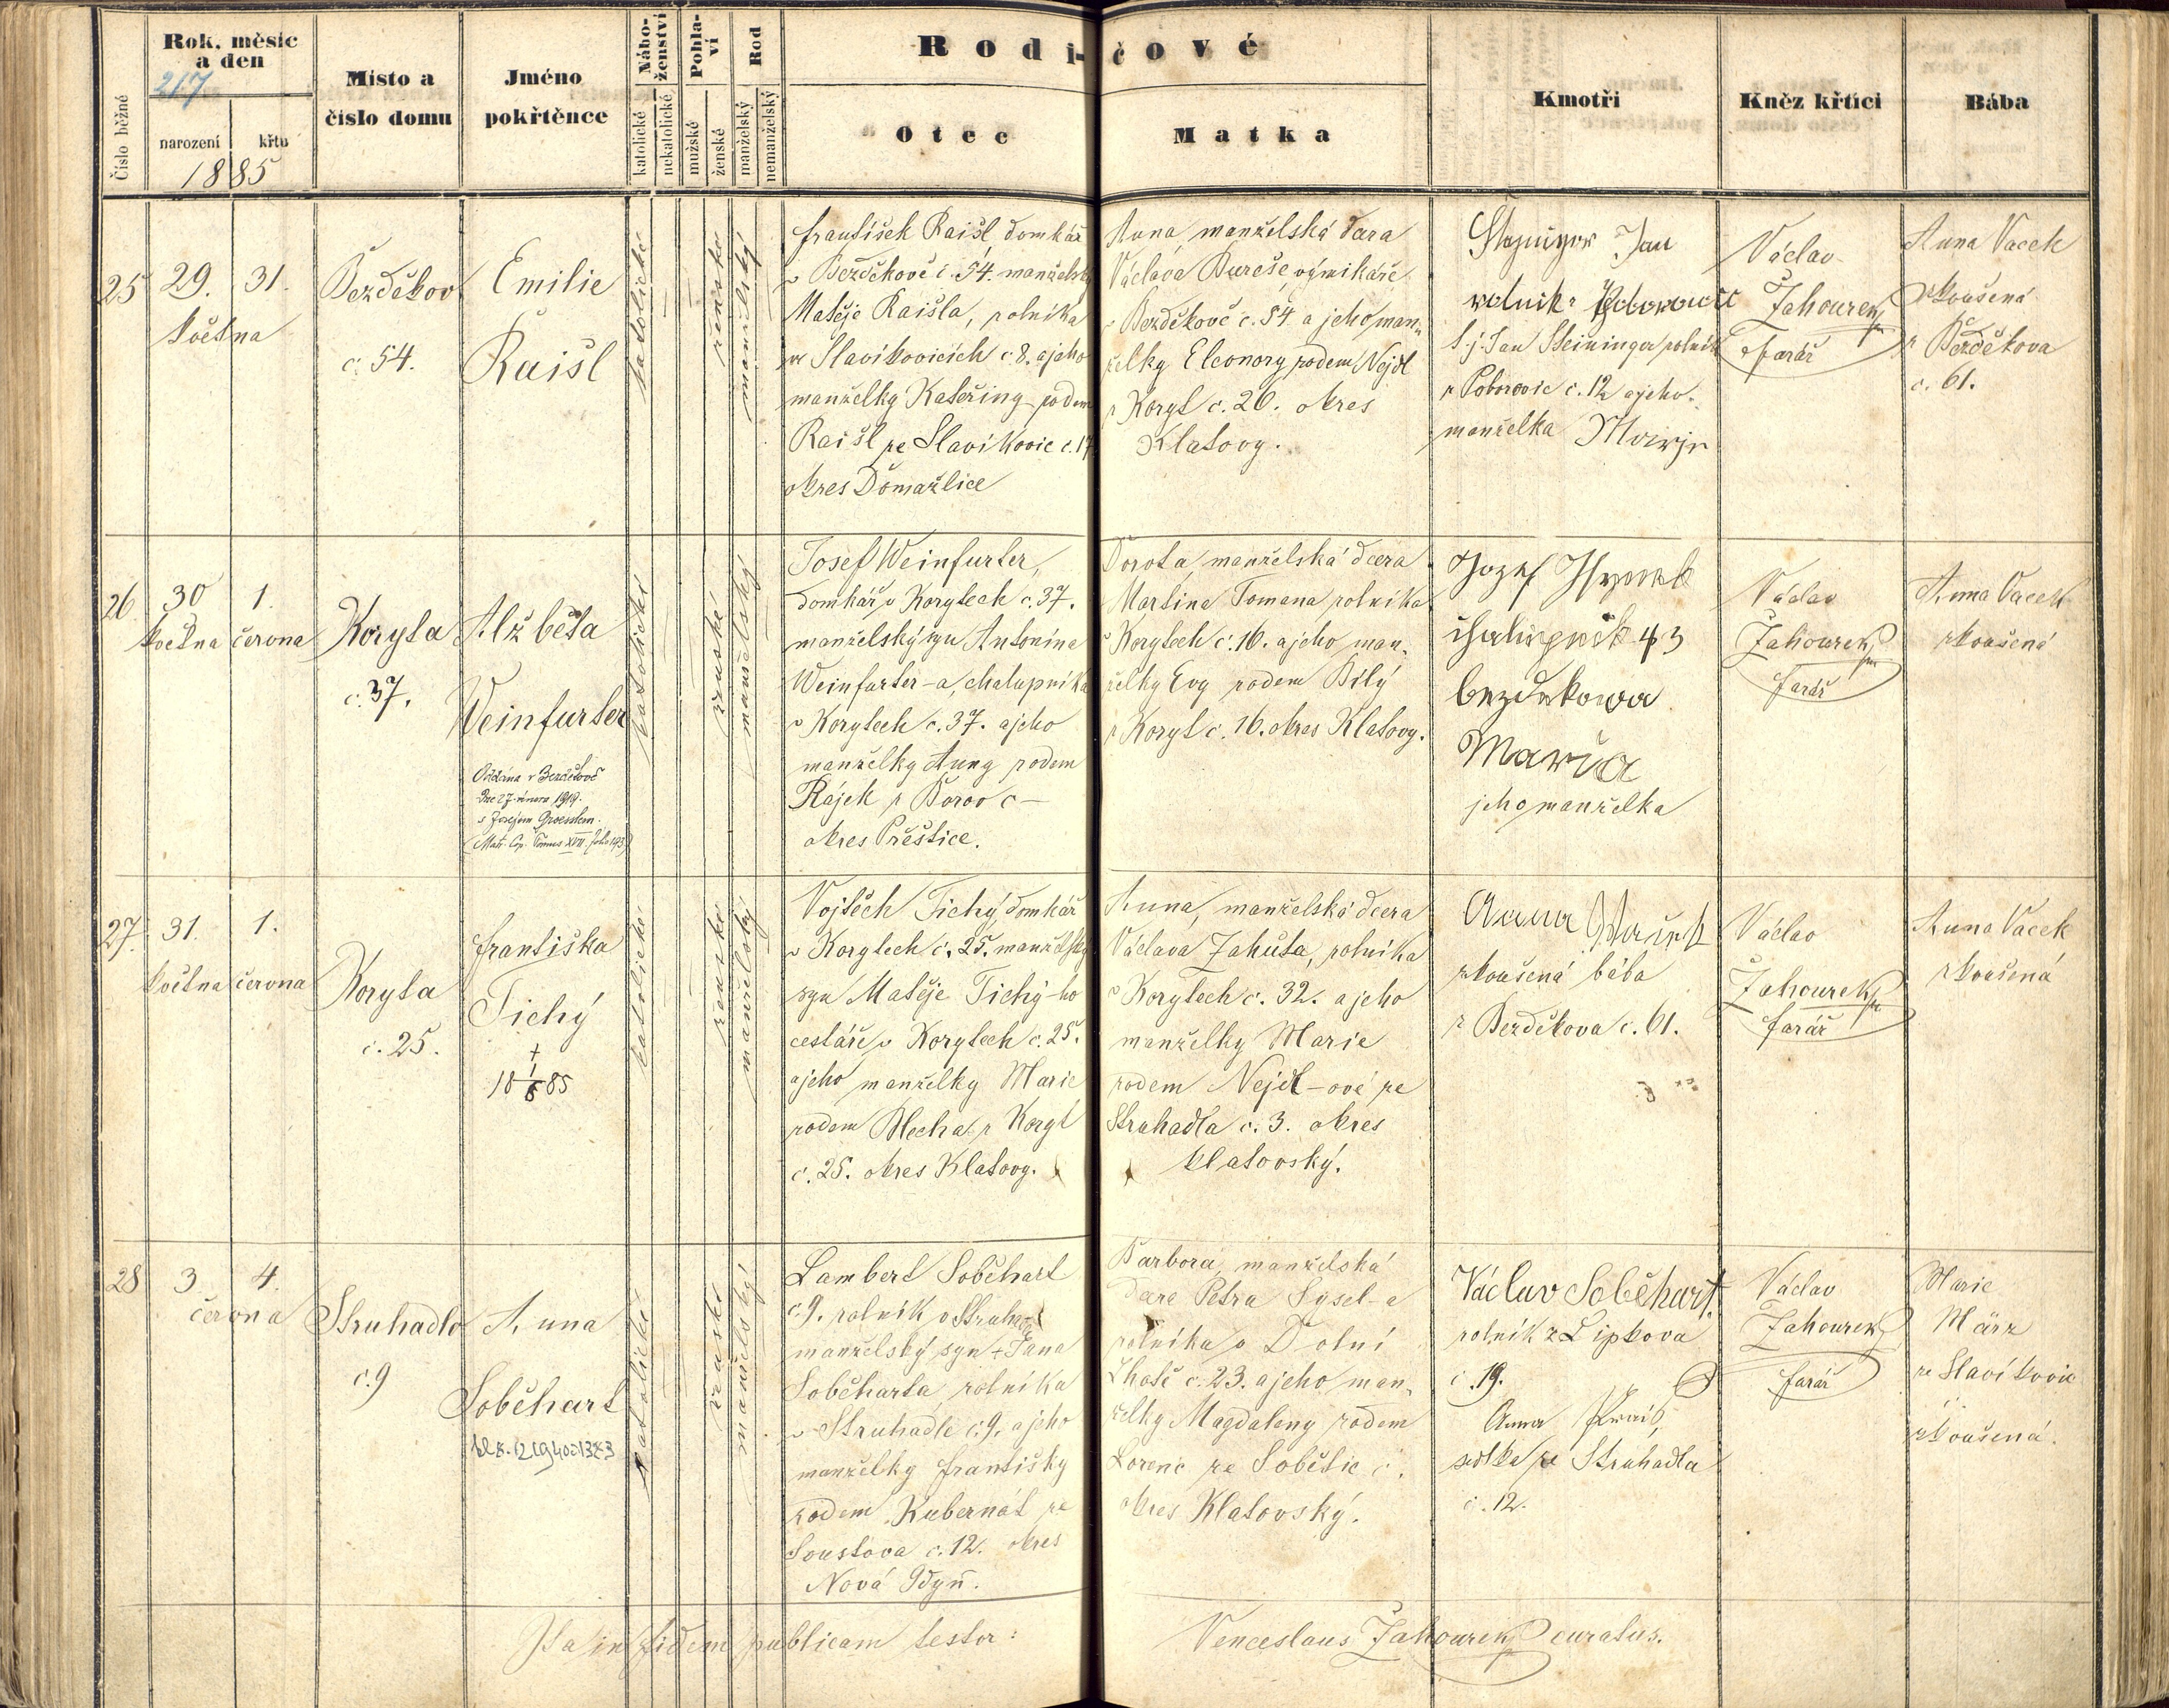 Číslo běžné
Rok, měsíc
a den
217
narození
křtu
1885
Místo a
číslo domu
Jméno
pokřtěnce
Nábo-
ženství
katolické
nekatolické
Pohla-
ví
mužské
ženské
Rod
manželský
nemanželský
Rodi-
čové
Otec
Matka
Kmotři
Kněz křtící
Bába
25
29.
31.
května
Bezděkov
č. 54.
Emilie
Raišl
katolické
ženské
manželský
František Raišl, domkář
v Bezděkově č. 54. manželský
Matěje Raišla, rolníka
ve Slavíkovicích č. 8. a jeho
manželky Kateřiny rodem
Raišl ze Slavíkovic č. 17
okres Domažlice
Anna, manželská dcera
Václava Bureše, výmikáře
v Bezděkově č. 54 a jeho man-
želky Eleonory rodem Nejdl
z Koryt c. 26. okres
Klatovy.
Jan
rolnik
t. j. Jan Steininger rolník
z Poborovic č. 12 a jeho
manželka
Václav
Žahourek
farář
Anna Vacek
zkoušená
z Bezděkova
c. 61.
26
30
1.
května
června
Koryta
c. 37.
Alžběta
Weinfurter
Oddána v Bezděkově
dne 27. února 1919.
s Josefem
(Matr. Cop. Tomus XVII. folio 193)
katolické
ženské
manželský
Josef Weinfurter,
domkář v Korytech c. 37.
manželský syn Antonína
Weinfurter-a, chalupníka
v Korytech c. 37. a jeho
manželky Anny rodem
Rájek z Borov c—
okres Přeštice.
Dorota, manželská dcera
Martina Tomana rolníka
v Korytech č. 16. a jeho man-
želky Evy rodem Bílý
z Koryt c. 16. okres Klatovy.
Jozef
43
bezdekowa
Maria
jeho manželka
Václav
Žahourek
farář
Anna Vacek
zkoušená
27.
31.
1.
května
června
Koryta
č. 25.
Františka
Tichý
†
18 1/6 85
katolické
ženské
manželský
Vojtěch Tichý, domkář
v Korytech č. 25. manželský
syn Matěje Tichý-ho
cestáře v Korytech c. 25.
a jeho manželky Marie
rodem Blecha z Koryt
č. 25. okres Klatovy.
Anna, manželská dcera
Václava Žahuta, rolníka
v Korytech c. 32. a jeho
manželky Marie
rodem Nejdl-ové ze
Struhadla c. 3. okres
klatovský.
Anna
zkoušená bába
z Bezděkova č. 61.
Václav
Žahourek
farář
Anna Vacek
zkoušená
28
3
4.
června
Struhadlo
c. 9
Anna
Soběhart
katolické
ženské
manželský
Lambert Soběhart
č. 9. rolník v Struhadle
manželský syn † Jana
Soběharta, rolníka
v Struhadle č. 9. a jeho
manželky Františky
rodem Kubernát ze
Soustova c. 12. okres
Nová Gdyň.
Barbora, manželská
dcera Petra Sysel-a
rolníka v Dolní
Lhotě c. 23. a jeho man-
želky Magdaleny rodem
Lorenc ze Soběšic č.
okres Klatovský.
Václav Soběhart.
rolník z Lipkova
č. 19.
Anna
selka ze Struhadla
č. 12.
Václav
Žahourek
farář
Marie
März
ze Slavíkovic
zkoušená.
Ita in fidem publicam testor:
Venceslaus Žahourek curatus.